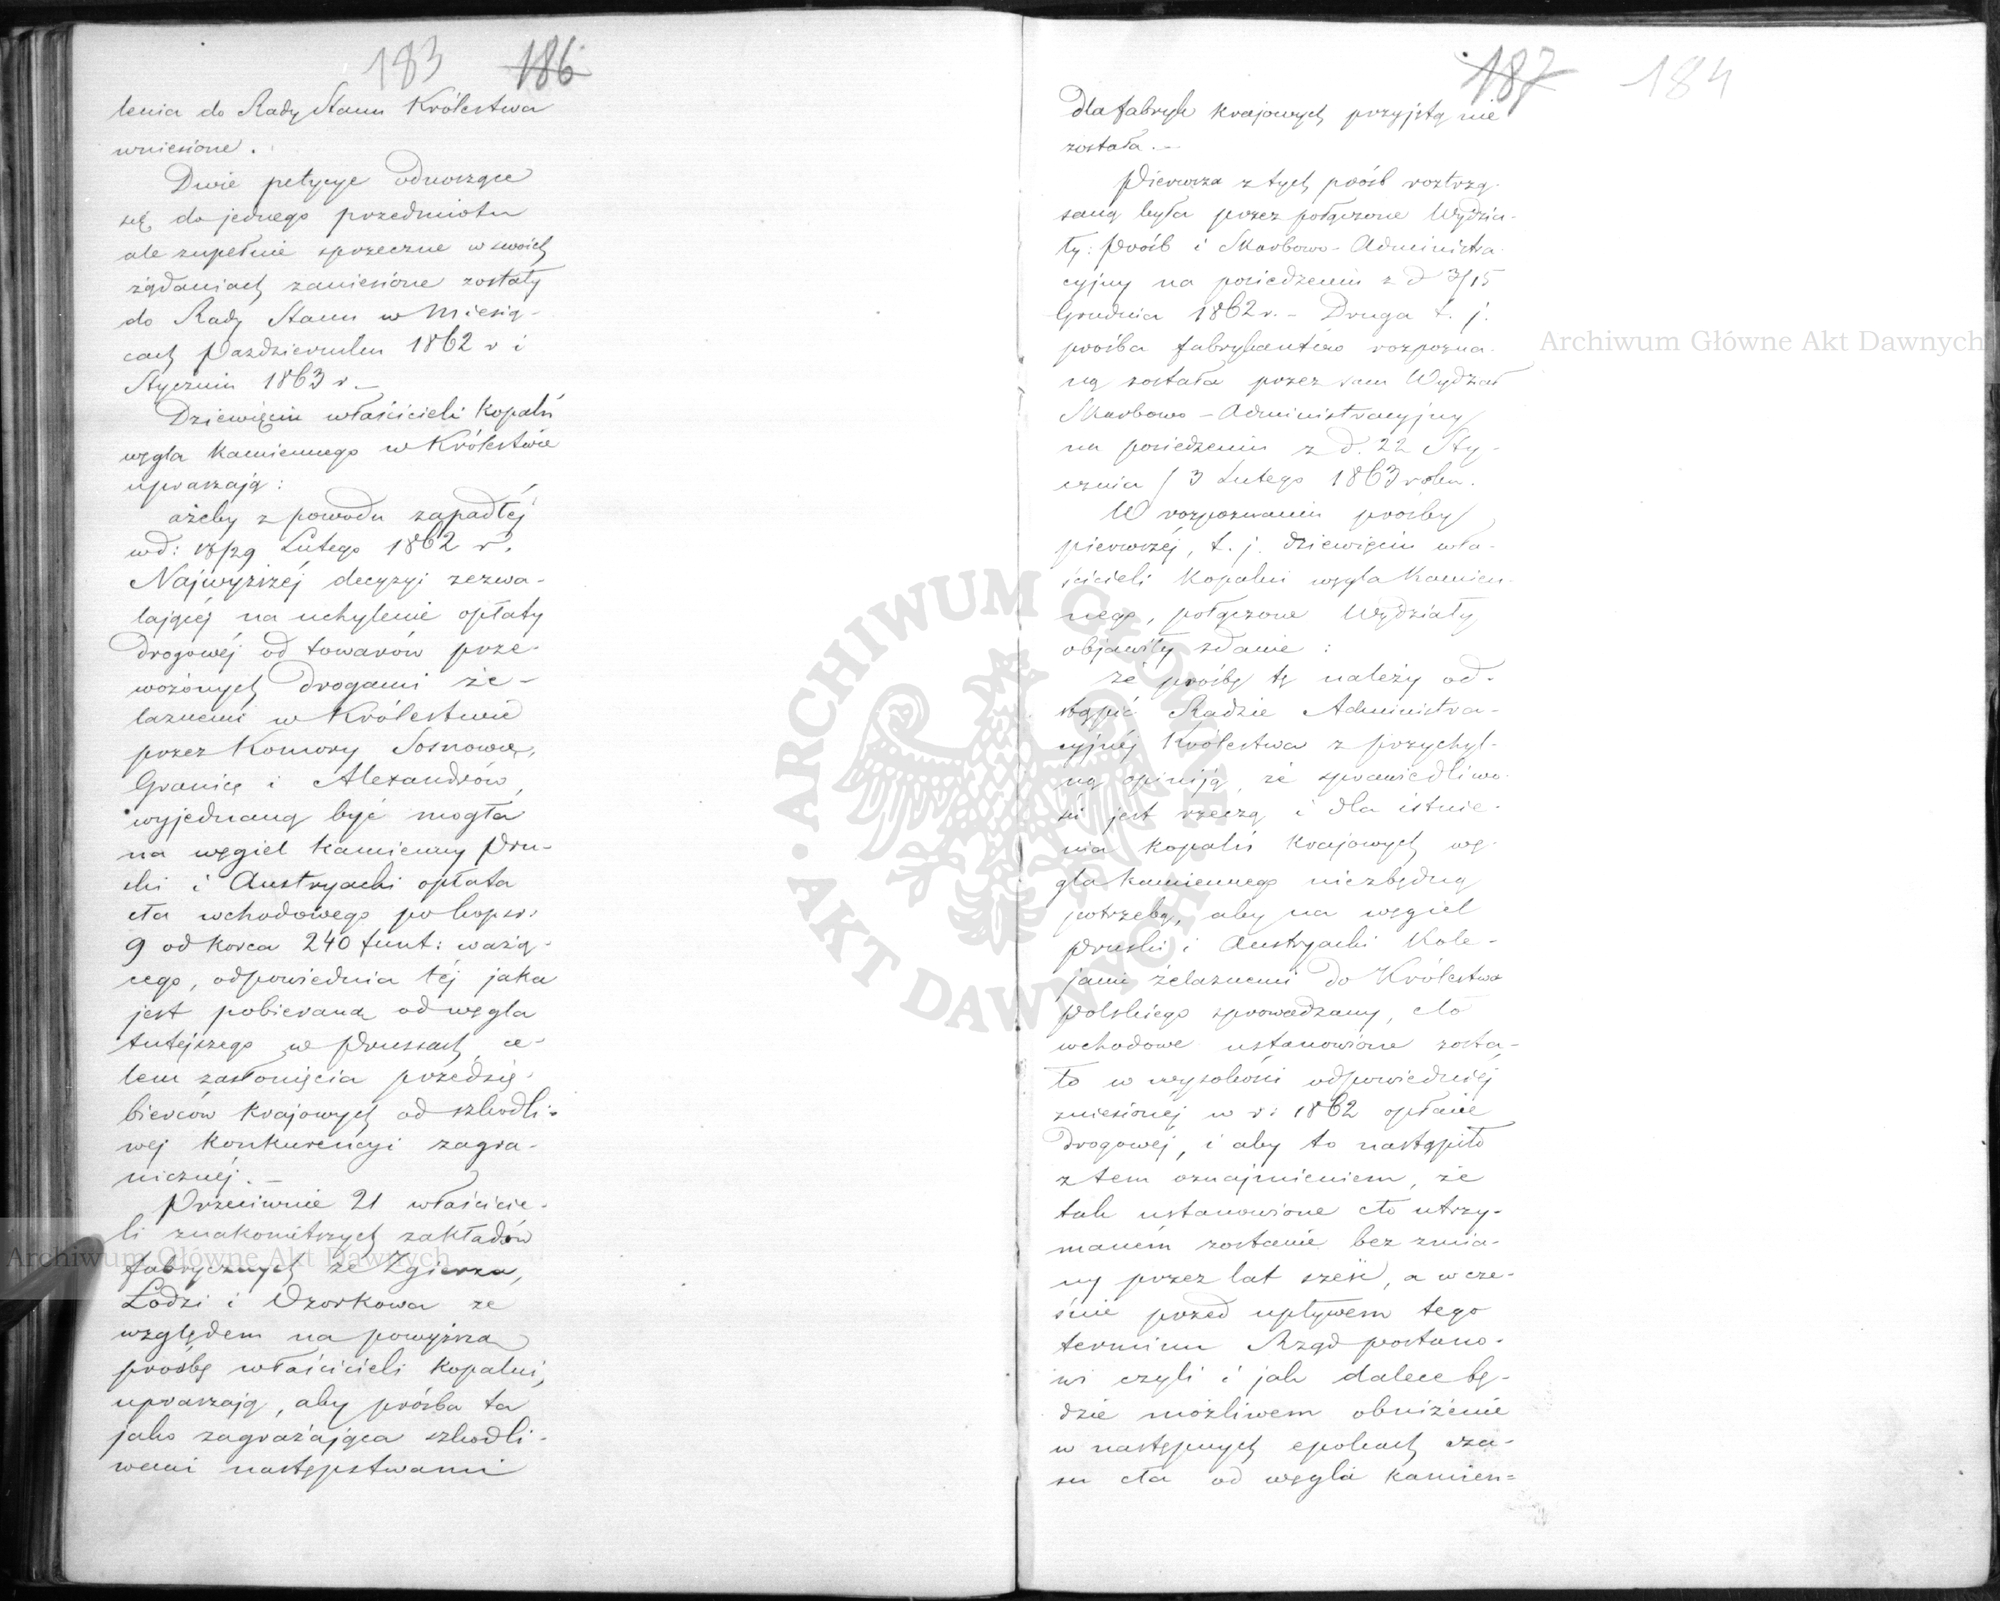 183 186
lenia do Rady Stanu Królestwa
wniesione.
Dwie petycye odnoszące
się do jednego przedmiotu
ale zupełnie sprzeczne w swoich
żądaniach zaniesione zostały
do Rady Stanu w Miesią-
cach Październiku 1862 r i
Styczniu 1863 r.—
Dziewięciu właścicieli Kopalń
węgla Kamiennego w Królestwie
upraszają:
ażeby z powodu zapadłéj
w d: 17/29 Lutego 1862 r.
Najwyższéj decyzyi zezwa-
lającéj na uchylenie opłaty
drogowéj od towarów prze-
wożonych drogami że-
laznemi w Królestwie
przez Komory Sosnowie,
Granicę i Alexandrów,
wyjednaną być mogła
na węgiel Kamienny Pru-
ski i Austryacki opłata
cła wchodowego po kopr:
9 od Korca 240 funt: ważą-
cego, odpowiednia téj jaka
jest pobieraną od węgla
tutejszego w Prusach, ce-
lem zasłonięcia przedsię-
bierców krajowych od szkodli-
wej konkurencyi zagra-
nicznéj.—
Przeciwnie 21 właścicie-
li znakomitszych zakładów
fabrycznych ze Zgierza,
Łodzi i Ozorkowa ze
względem na powyższą
prośbę właścicieli Kopalni,
upraszają, aby prośba ta
jako zagrażająca szkodli-
wemi następstwami
187 184
dla fabryk krajowych przyjętą nie
została.—
Pierwsza z tych próśb roztrzą-
saną była przez połączone Wydzia-
ły: Próśb i Skarbowo-Administra-
cyjny na posiedzeniu z d 3/15
Grudnia 1862 r.— Druga t. j.
prośba fabrykantów rozpozna-
ną została przez sam Wydział
Skarbowo-Administracyjny
na posiedzeniu z d. 22 Sty-
cznia / 3 Lutego 1863 roku.
W rozpoznaniu prośby
pierwszéj, t. j. dziewięciu wła-
ścicieli Kopalni węgla Kamien-
nego, połączone Wydziały
objawiły zdanie:
że prośbę tę należy od-
stąpić Radzie Administra-
cyjnéj Królestwa z przychyl-
ną opiniją, że sprawiedliwo-
ści jest rzeczą i dla istnie-
nia Kopalń Krajowych wę-
gla kamiennego niezbędną
potrzebą, aby na węgiel
Pruski i Austryacki Kole-
jami żelaznemi do Królestwa
Polskiego sprowadzany, cło
wchodowe ustanowione zosta-
ło w wysokości odpowiedniéj
zniesionéj w r: 1862 opłacie
drogowéj, i aby to nastąpiło
z tem oznajmieniem, że
tak ustanowione cło utrzy-
maném zostanie bez zmia-
ny przez lat sześć, a wcze-
śnie przed upływem tego
terminu Rząd postano-
wi czyli i jak dalece bę-
dzie możliwem obniżenie
w następnych epokach cza-
su cła od węgla kamien-
Archiwum Główne Akt Dawnych
Archiwum Główne Akt Dawnych
ARCHIWUM GŁÓWNE AKT DAWNYCH